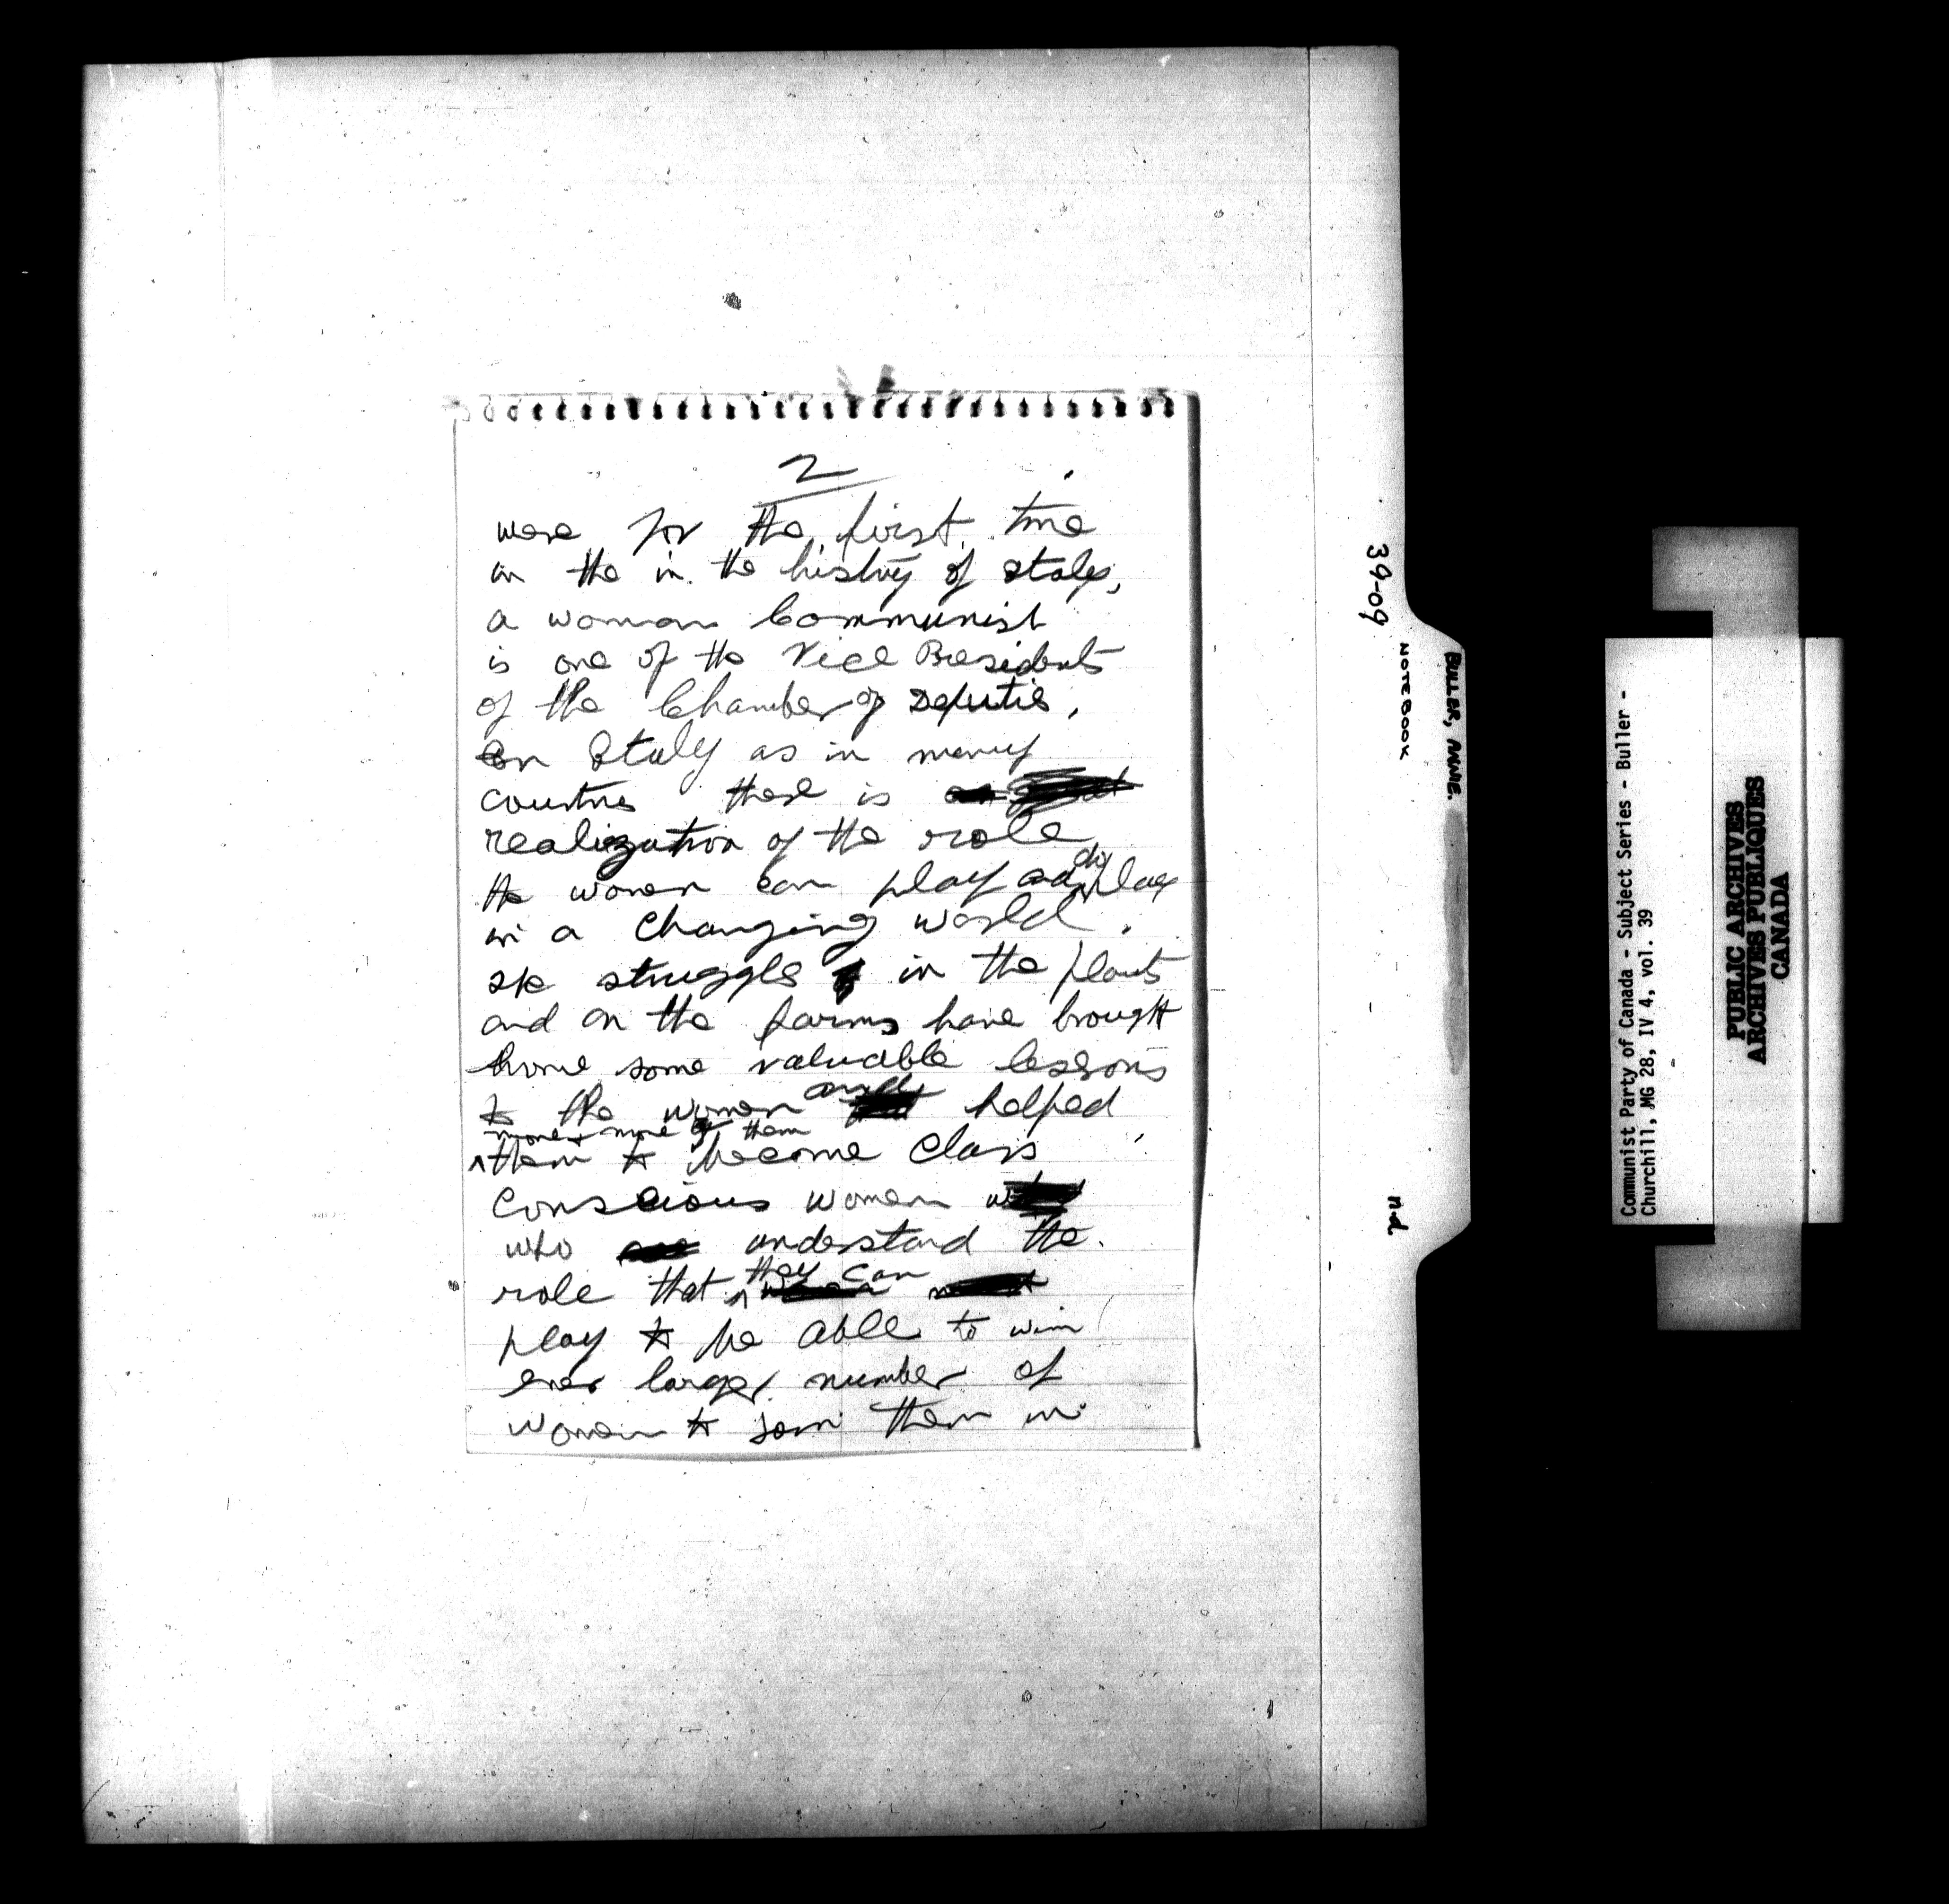 2
were for the first time
in the in the history of Italy,
a woman Communist
is one of the Vice Presidents
of the Chamber of Deputies,
In Italy as in many
countries there is
realization of the role
the women can play and do play
in a changing world.
struggle in the plants
and on the farms have brought
home some valuable lessons
to the women and helped
more & more of them
them to become Class
Conscious women
who understand the
role that they can
play to be able to win
ever larger number of
women to join them in
39-09
NOTEBOOK
BULLER, ANNIE.
n.d.
Communist Party of Canada - Subject Series - Buller -
Churchill, MG 28, IV 4, vol. 39
PUBLIC ARCHIVES
ARCHIVES PUBLIQUES
CANADA